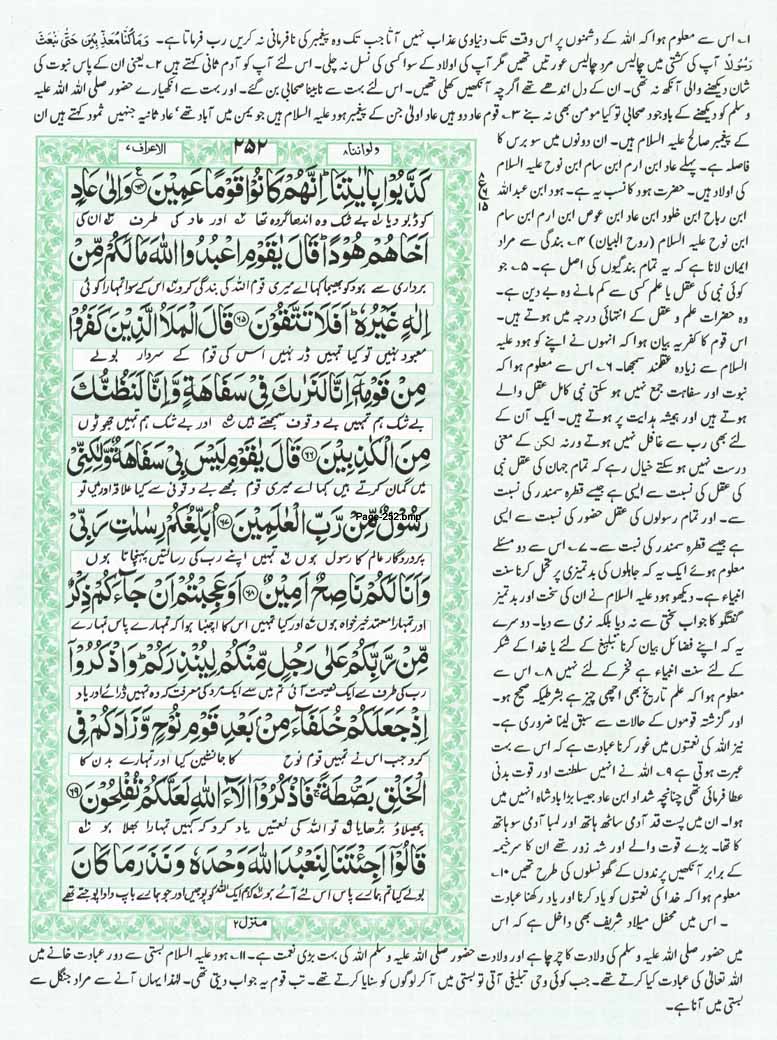 ۱۔ اس سے معلوم ہوا کہ اللہ کے دشمنوں پر اس وقت تک دنیاوی عذاب نہیں آتا جب تک وہ پیغمبر کی نافرمانی نہ کریں رب فرماتا ہے۔ وَمَا كُنَّا مُعَذِّبِيْنَ حَتّٰى نَبْعَثَ
رَسُوْلًا آپ کی کشتی میں چالیس مرد چالیس عورتیں تھیں مگر آپ کی اولاد کے سوا کسی کی نسل نہ چلی۔ اس لئے آپ کو آدم ثانی کہتے ہیں ۲۔ یعنی ان کے پاس نبوت کی
شان دیکھنے والی آنکھ نہ تھی۔ ان کے دل اندھے تھے اگرچہ آنکھیں کھلی تھیں۔ اس لئے بہت سے نابینا صحابی بن گئے۔ اور بہت سے انکھیارے حضور صلی اللہ علیہ
وسلم کو دیکھنے کے باوجود صحابی تو کیا مومن بھی نہ بنے ۳۔ قوم عاد دو ہیں عاد اولیٰ جن کے پیغمبر ہود علیہ السلام ہیں جو یمن میں آباد تھے' عاد ثانیہ جنہیں ثمود کہتے ہیں ان
کے پیغمبر صالح علیہ السلام ہیں۔ ان دونوں میں سو برس کا
فاصلہ ہے۔ پہلے عاد ابن ارم ابن سام ابن نوح علیہ السلام
کی اولاد ہیں۔ حضرت ہود کا نسب یہ ہے۔ ہود ابن عبداللہ
ابن رباح ابن خلود ابن عاد ابن عوص ابن ارم ابن سام
ابن نوح علیہ السلام (روح البیان) ۴۔ بندگی سے مراد
ایمان لانا ہے کہ یہ تمام بندگیوں کی اصل ہے۔ ۵۔ جو
کوئی نبی کی عقل یا علم کسی سے کم مانے وہ بے دین ہے۔
وہ حضرات علم و عقل کے انتہائی درجہ میں ہوتے ہیں۔
اس قوم کا کفر یہ بیان ہوا کہ انہوں نے اپنے کو ہود علیہ
السلام سے زیادہ عقلمند سمجھا۔ ۶۔ اس سے معلوم ہوا کہ
نبوت اور سفاہت جمع نہیں ہو سکتی نبی کامل عقل والے
ہوتے ہیں اور ہمیشہ ہدایت پر ہوتے ہیں۔ ایک آن کے
لئے بھی رب سے غافل نہیں ہوتے ورنہ لکن کے معنی
درست نہیں ہو سکتے خیال رہے کہ تمام جہان کی عقل نبی
کی عقل کی نسبت سے ایسی ہے جیسے قطرہ سمندر کی نسبت
سے۔ اور تمام رسولوں کی عقل حضور کی نسبت سے ایسی
ہے جیسے قطرہ سمندر کی نسبت سے۔ ۷۔ اس سے دو مسئلے
معلوم ہوئے ایک یہ کہ جاہلوں کی بدتمیزی پر تحمل کرنا سنت
انبیاء ہے۔ دیکھو ہود علیہ السلام نے ان کی سخت اور بدتمیز
گفتگو کا جواب سختی سے نہ دیا بلکہ نرمی سے دیا۔ دوسرے
یہ کہ اپنے فضائل بیان کرنا تبلیغ کے لئے یا خدا کے شکر
کے لئے سنت انبیاء ہے فخر کے لئے نہیں ۸۔ اس سے
معلوم ہوا کہ علم تاریخ بھی اچھی چیز ہے بشرطیکہ صحیح ہو۔
اور گزشتہ قوموں کے حالات سے سبق لینا ضروری ہے۔
نیز اللہ کی نعمتوں میں غور کرنا عبادت ہے کہ اس سے بہت
عبرت ہوتی ہے ۹۔ اللہ نے انہیں سلطنت اور قوت بدنی
عطا فرمائی تھی چنانچہ شداد ابن عاد جیسا بڑا بادشاہ انہیں میں
ہوا۔ ان میں پست قد آدمی ساٹھ ہاتھ اور لمبا آدمی سو ہاتھ
کا تھا۔ بڑے قوت والے اور شہ زور تھے ان کا سر خیمہ
کے برابر آنکھیں پرندوں کے گھونسلوں کی طرح تھیں ۱۰۔
معلوم ہوا کہ خدا کی نعمتوں کو یاد کرنا اور یاد رکھنا عبادت
۔ اس میں محفل میلاد شریف بھی داخل ہے کہ اس
ولواننا ۸ ۲۵۲ الاعراف ۷
كَذَّبُوْا بِاٰيٰتِنَاؕ اِنَّهُمْ كَانُوْا قَوْمًا عَمِيْنَ ۶۴ وَاِلٰى عَادٍ
کو ڈبو دیا بے شک وہ اندھا گروہ تھا اور عاد کی طرف ان کی
اَخَاهُمْ هُوْدًاؕ قَالَ يٰقَوْمِ اعْبُدُوا اللّٰهَ مَا لَكُمْ مِّنْ
برادری سے ہود کو بھیجا کہا اے میری قوم اللہ کی بندگی کرو اس کے سوا تمہارا کوئی
اِلٰهٍ غَيْرُهٗؕ اَفَلَا تَتَّقُوْنَ ۶۵ قَالَ الْمَلَاُ الَّذِيْنَ كَفَرُوْا
معبود نہیں تو کیا تمہیں ڈر نہیں اس کی قوم کے سردار بولے
مِنْ قَوْمِهٖۤ اِنَّا لَنَرٰىكَ فِيْ سَفَاهَةٍ وَّاِنَّا لَنَظُنُّكَ
بے شک ہم تمہیں بے وقوف سمجھتے ہیں اور بے شک ہم تمہیں جھوٹوں
مِنَ الْكٰذِبِيْنَ ۶۶ قَالَ يٰقَوْمِ لَيْسَ بِيْ سَفَاهَةٌ وَّلٰكِنِّيْ
میں گمان کرتے ہیں کہا اے میری قوم مجھے بے وقوفی سے کیا علاقہ اور میں تو
رَسُوْلٌ مِّنْ رَّبِّ الْعٰلَمِيْنَ ۶۷ اُبَلِّغُكُمْ رِسٰلٰتِ رَبِّيْ
Page-252.bmp
پروردگار عالم کا رسول ہوں تمہیں اپنے رب کی رسالتیں پہنچاتا ہوں
وَاَنَا لَكُمْ نَاصِحٌ اَمِيْنٌ ۶۸ اَوَعَجِبْتُمْ اَنْ جَآءَكُمْ ذِكْرٌ
اور تمہارا معتمد خیر خواہ ہوں اور کیا تمہیں اس کا اچنبا ہوا کہ تمہارے پاس تمہارے
مِّنْ رَّبِّكُمْ عَلٰى رَجُلٍ مِّنْكُمْ لِيُنْذِرَكُمْؕ وَاذْكُرُوْۤا
رب کی طرف سے ایک نصیحت آئی تم میں سے ایک مرد کی معرفت کہ وہ تمہیں ڈرائے اور یاد
اِذْ جَعَلَكُمْ خُلَفَآءَ مِنْۢ بَعْدِ قَوْمِ نُوْحٍ وَّزَادَكُمْ فِي
کرو جب اس نے تمہیں قوم نوح کا جانشین کیا اور تمہارے بدن کا
الْخَلْقِ بَصْۜطَةًۚ فَاذْكُرُوْۤا اٰلَآءَ اللّٰهِ لَعَلَّكُمْ تُفْلِحُوْنَ ۶۹
پھیلاؤ بڑھایا تو اللہ کی نعمتیں یاد کرو کہ کہیں تمہارا بھلا ہو
قَالُوْۤا اَجِئْتَنَا لِنَعْبُدَ اللّٰهَ وَحْدَهٗ وَنَذَرَ مَا كَانَ
بولے کیا تم ہمارے پاس اس لئے آئے ہو کہ ہم ایک اللہ کو پوجیں اور جو ہمارے باپ دادا پوجتے تھے
منزل ۲
میں حضور صلی اللہ علیہ وسلم کی ولادت کا چرچا ہے اور ولادت حضور صلی اللہ علیہ وسلم اللہ کی بہت بڑی نعمت ہے۔ ۱۱۔ ہود علیہ السلام بستی سے دور عبادت خانے میں
اللہ تعالیٰ کی عبادت کیا کرتے تھے۔ جب کوئی وحی تبلیغی آتی تو بستی میں آ کر لوگوں کو سنایا کرتے تھے۔ تب قوم یہ جواب دیتی تھی۔ لہٰذا یہاں آنے سے مراد جنگل سے
بستی میں آنا ہے۔